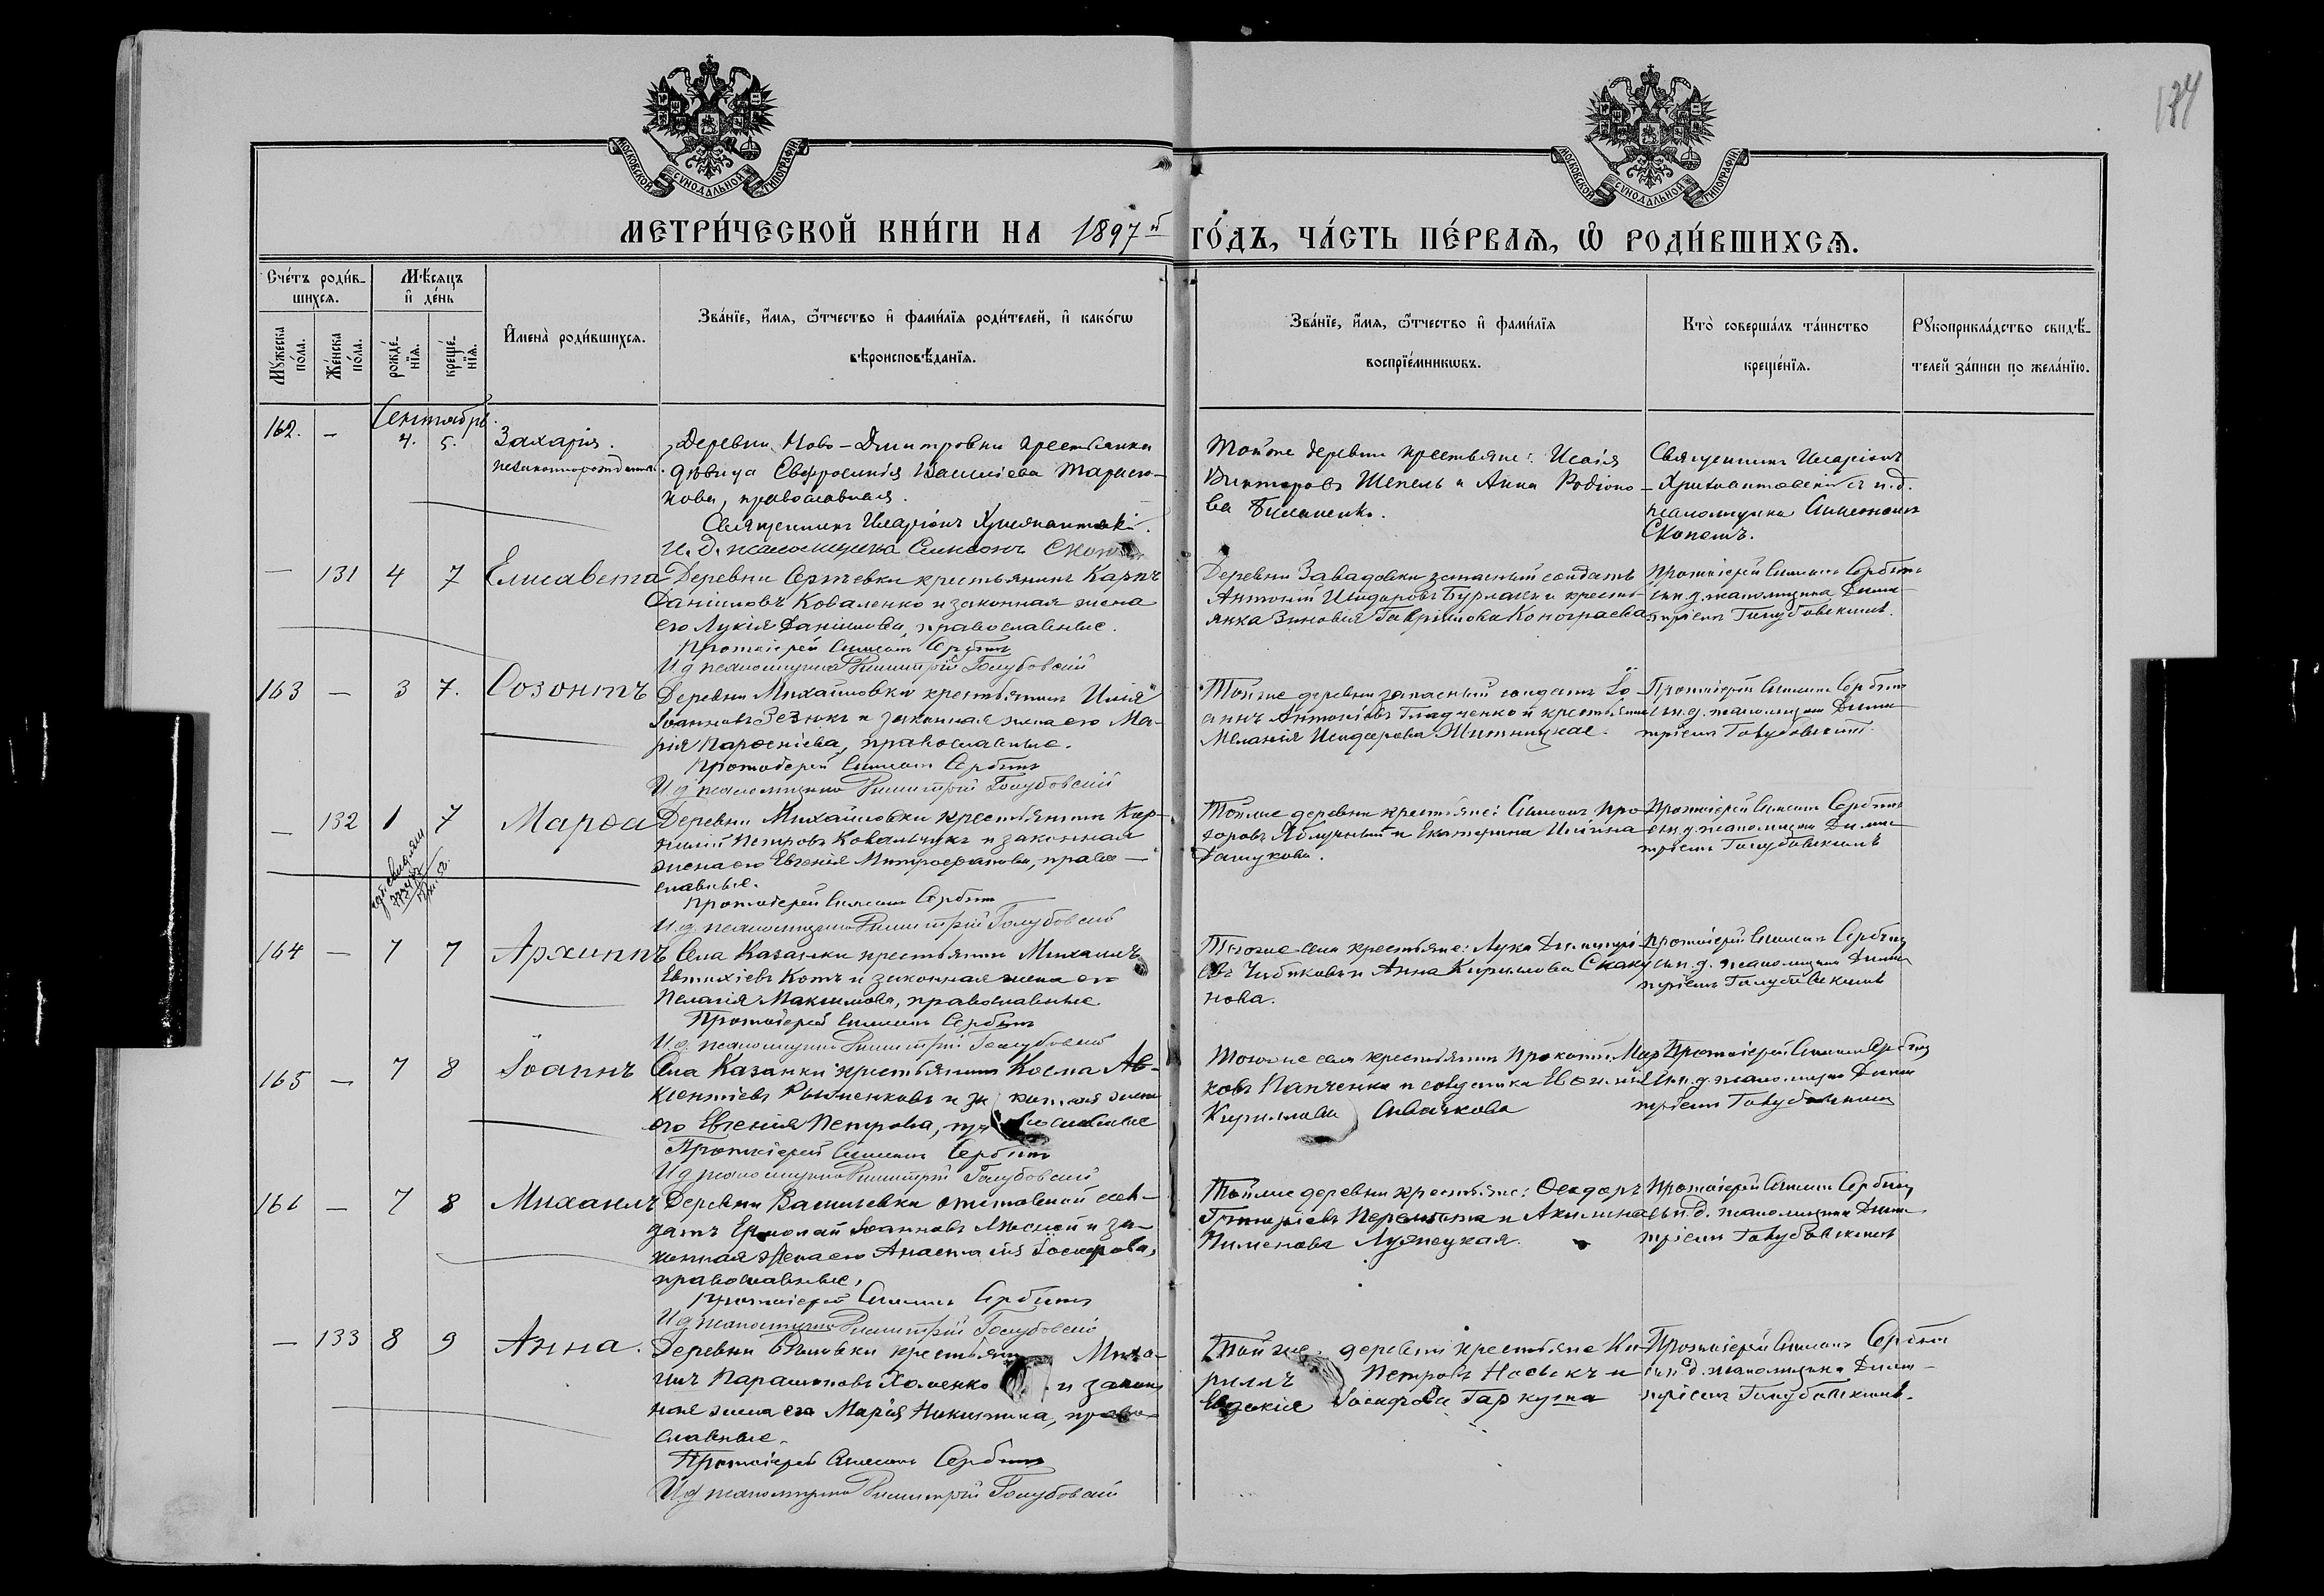 174
МОСКОВСКОЙ СУНОДАЛЬНОЙ ТИПОГРАФІИ
МОСКОВСКОЙ СУНОДАЛЬНОЙ ТИПОГРАФІИ
МЕТРИ́ЧЕСКОЙ КНИ́ГИ НА 1897й ГО́ДЪ, ЧА́СТЬ ПЕ́РВАѦ, Ѡ РОДИ́ВШИХСѦ.
Сче́тъ роди́в-
шихсѧ.
Мѣ́сѧцъ
и҆ де́нь
Мꙋжеска по́ла.
Же́нска по́ла.
рожде́-
нїѧ.
креще́-
нїѧ.
И҆мена̀ роди́вшихсѧ.
Зва́нїе, и҆́мѧ, ѻ҆́тчество и҆ фами́лїѧ роди́телей, и҆ како́гѡ
вѣроисповѣ́данїѧ.
Зва́нїе, и҆́мѧ, ѻ҆́тчество и҆ фами́лїѧ
воспрїе́мникѡвъ.
Кто̀ соверша́лъ та́инство
креще́нїѧ.
Рꙋкоприкла́дство свидѣ́-
телей за́писи по жела́нїю.
Сентябрь.
162. — 4. 5. Захарія.
незаконнорожденный.
Деревни Ново-Дмитровки крестьянка
дѣвица Евфросинія Василіева Тарасю-
кова, православная.
Священникъ Иларіонъ
И. д. псаломщика Симеонъ
Той же деревни крестьяне: Исаія
Викторовъ Шепель и Анна Родіоно-
ва
Священникъ Иларіонъ
съ и.д.
псаломщика Симеономъ
— 131 4 7 Елисавета
Деревни Сергѣевки крестьянинъ Карпъ
Даніиловъ Коваленко и законная жена
его Лукія Даніилова, православные.
Протоіерей Симеонъ Сербинъ
И д псаломщика Димитрій Голубовскій
Деревни Завадовки запасный солдатъ
Антоній Исидоровъ Бурлака и кресть-
янка Зиновія Гавріилова
Протоіерей Симеонъ Сербинъ
съ и. д. псаломщика Дими-
тріемъ Голубовскимъ.
163 — 3 7. Созонтъ
Деревни Михайловки крестьянинъ Илія
Іоанновъ Зезюкъ и законная жена его Ма-
рія Парѳеніева, православные.
Протоіерей Симеонъ Сербинъ
И д псаломщика Димитрій Голубовскій
Той же деревни запасный солдатъ Іо-
аннъ Антоніевъ Гладченко и крестьянка
Меланія Исидорова Житницкая.
Протоіерей Симеонъ Сербинъ
съ и. д. псаломщика Дими-
тріемъ Голубовскимъ.
— 132 1 7 Марѳа
Деревни Михайловки крестьянинъ Кор-
нилій Петровъ Ковальчукъ и законная
жена его Евгенія Митрофанова, право-
славные.
Протоіерей Симеонъ Сербинъ
И.д. псаломщика Димитрій Голубовскій
Той же деревни крестьяне: Симеонъ
Яблучный и Екатерина Иліина
Протоіерей Симеонъ Сербинъ
съ и. д. псаломщика Дими-
тріемъ Голубовскимъ
164 — 7 7 Архиппъ
Села Казанки крестьянинъ Михаилъ
Евтихіевъ Котъ и законная жена его
Пелагія Максимова, православные
Протоіерей Симеонъ Сербинъ
И.д. псаломщика Димитрій Голубовскій
Того же села крестьяне: Лука Димитрі-
евъ и Анна Кириллова Скаку-
нова.
Протоіерей Симеонъ Сербинъ
съ и. д. псаломщика Дими-
тріемъ Голубовскимъ
165 — 7 8 Іоаннъ
Села Казанки крестьянинъ Косма Ав-
ксентіевъ и законная жена
его Евгенія Петрова, православные
Протоіерей Симеонъ Сербинъ
И д псаломщика Димитрій Голубовскій
Того же села крестьянинъ Прокопій Мар-
ковъ Панченко и
Кириллова Сивачкова
Протоіерей Симеонъ Сербинъ
съ и. д. псаломщика Дими-
тріемъ Голубовскимъ
166 — 7 8 Михаилъ
Деревни Василіевки отставной сол-
датъ Ермолай Іоанновъ и за-
конная жена его Анастасія Іосифова,
православные,
Протоіерей Симеонъ Сербинъ
И д псаломщика Димитрій Голубовскій
Той же деревни крестьяне: Ѳеодоръ
Григоріевъ и Акилина
Пименова
Протоіерей Симеонъ Сербинъ
съ и. д. псаломщика Дими-
тріемъ Голубовскимъ
— 133 8 9 Анна.
Деревни крестьянинъ Миха-
илъ Парамоновъ Хоменко и закон-
ная жена его Марія Никитина, право-
славные.
Протоіерей Симеонъ Сербинъ
И.д псаломщика Димитрій Голубовскій
Той же деревни крестьяне Ки-
риллъ Петровъ Носъкъ и
Евдокія Іосифова Гаркуша
Протоіерей Симеонъ Сербинъ
съ и. д. псаломщика Дими-
тріемъ Голубовскимъ.